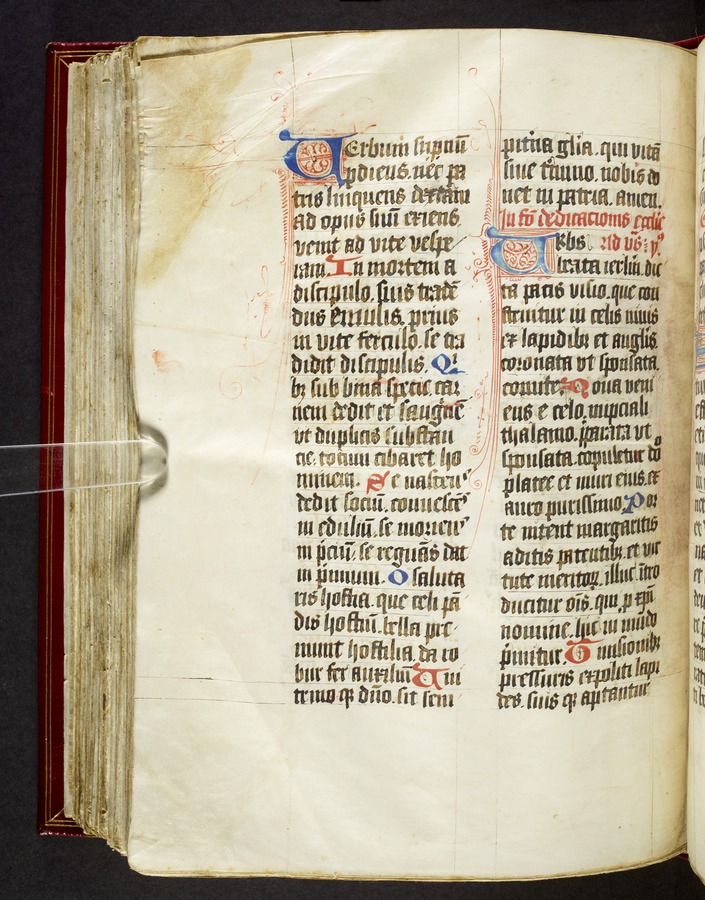 Verbum supernū
p̄dieus. nec pa
tris linquens dexterā
ad opus suū exiens.
venit ad vite vespe
ram. In mortem a
discipulo. suis tradē
dus emulis. prius
in vite ferculo. se tra
didit discipulis. Qi
bꝫ sub bina specie. car
nem dedit et sanguinē
vt duplicis substan
cie. totum cibaret ho
minem. Se nascens
dedit sociū. conuescēs
in ediliū. se moriens
in p̄ciū. se regnās dat
in p̄mium. O saluta
ris hostia. que celi pā
dis hostiū. bella pre
munt hostilia. da ro
bur fer auxiliū Vni
trino qꝫ dn̄o. sit sem
pit̄na glīa. qui vitā
sine t̄mino. nobis do
net in patria. amen.
In fō dedicacionis ecclīe
Vrbs ad vs̄: ẏ
beata ierlm̄. dic
ta pacis visio. que con
struitur in celis viuis
ex lapidibꝫ et anglīs.
coronata vt sponsata.
comite. Noua veni
ens e celo. nupciali
thalamo. p̄parata vt
sponsata. copuletur dō
platee et muri eius. ex
auro purissimo Por
te nitent margaritis
aditis patentibꝫ. et vir
tute meritoꝝ. illuc īt̄o
ducitur oīs. qui p xpī
nomine. hic in mūdo
p̄mitur. Tunsionibꝫ
pressuris expoliti lapi
des. suis qꝫ aptantur